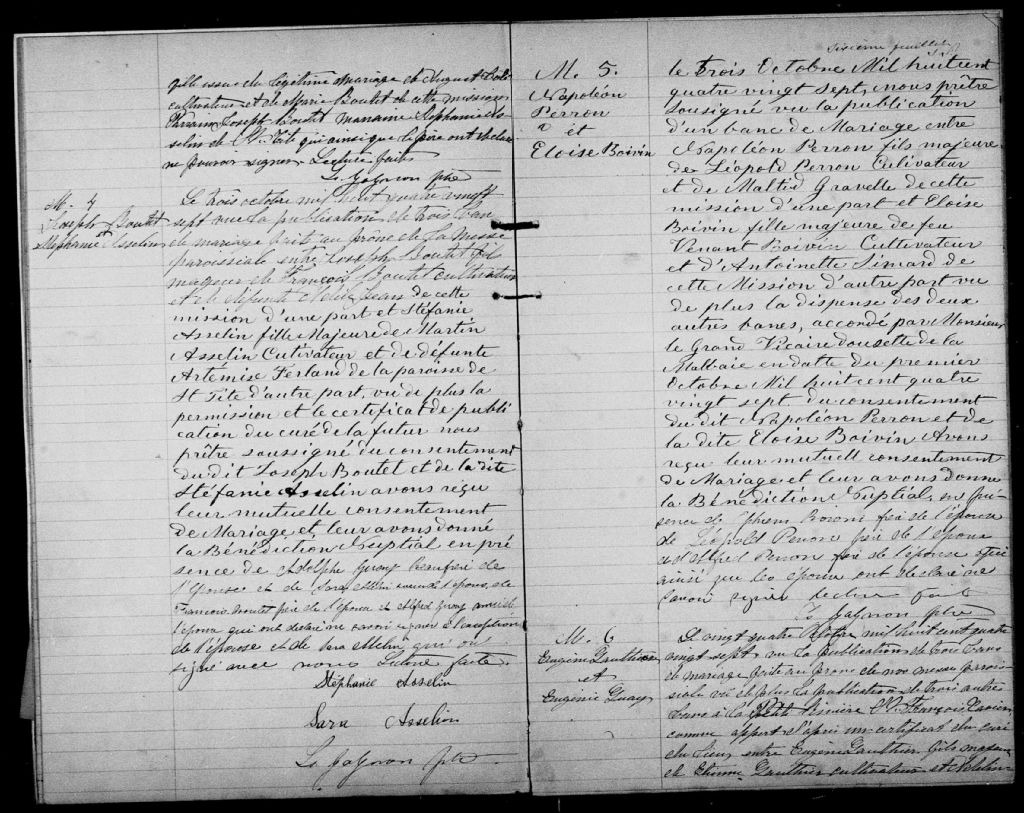 Cultivateur et de Marie Boutet de cette mission
Parrain Joseph Boutet marraine Stéphanie As-
selin de St. Tite qui ainsi que le père ont déclaré
ne pouvoir signer Lecture faite
Gagnon ptre
M. 4
Joseph Boutet
Stéphanie Asselin
Le trois octobre mil huit quatre vingt
sept vue la publication de trois ban
de mariage faite au prône de la Messe
paroissiale entre Joseph Boutet fils
majeur de François Boutet cultivateur
et de défunte Jean de cette
mission d'une part et Stéfanie
Asselin fille Majeure de Martin
Asselin Cultivateur et de défunte
Artémise Ferland de la paroisse de
St Tite d'autre part, vu de plus la
permission et le certificat de publi
cation du curé de la futur nous
prêtre soussigné du consentement
du dit Joseph Boutet et de la dite
Stéfanie Asselin avons reçu
leur mutuelle consentement
de Mariage et leur avons donné
la Bénédiction Nuptial en pré
sence de Adolphe beaufrère de
l'Epouse et de Sara l'épouse, de
François Boutet père de l'époux et Alfred ami de
l'époux qui ont déclaré ne savoir signer à l'exception
de l'épouse et de Sara Asselin qui ont
signé avec nous Lecture faite.
Stéphanie Asselin
Sara Asselin
Gagnon ptr
M. 5.
Napoléon
Perron
et
Eloise Boivin
Sixième feuillet
le trois Octobre Mil huit cent
quatre vingt sept, nous prêtre
sousigné vu la publication
d'un banc de Mariage entre
Napoléon Perron fils majeure
de Léopold Perron Cultivateur
et de Maltid Gravelle de cette
mission d'une part et Eloise
Boivin fille majeure de feu
Venant Boivin Cultivateur
et d'Antoinette Simard de
cette Mission d'autre part vu
de plus la dispense des deux
autres bancs, accordé par Monsieur
le Grand Vicaire Dousette de la
Malbaie en datte du premier
Octobre Mil huit cent quatre
vingt sept du consentement
du dit Napoléon Perron et de
la dite Eloise Boivin Avons
reçu leur mutuell consentement
de Mariage et leur avons donné
la Bénédiction Nuptial, en pré
sence de Ephrem frère de l'épouse
de Léopold Perron père de l'époux
et d'Alfred Perron frère de l'épouse qui
ainsi que les époux ont déclaré ne
savoir signer lecture faite
Gagnon ptre
M. 6
Eugène Gauthier
et
Eugénie Guay
Le vingt quatre Octobre mil huit cent quatre
vingt sept, vu la publications de trois bans
de mariage faite au prone de nos messe parois
siale vu de plus la publication de trois autres
bans à la Petite Rivière St. François Xavier
comme appert d'après un certificat du curé
du lieu, entre Eugène Gauthier fils majeur
de Etienne Gauthier cultivateur et